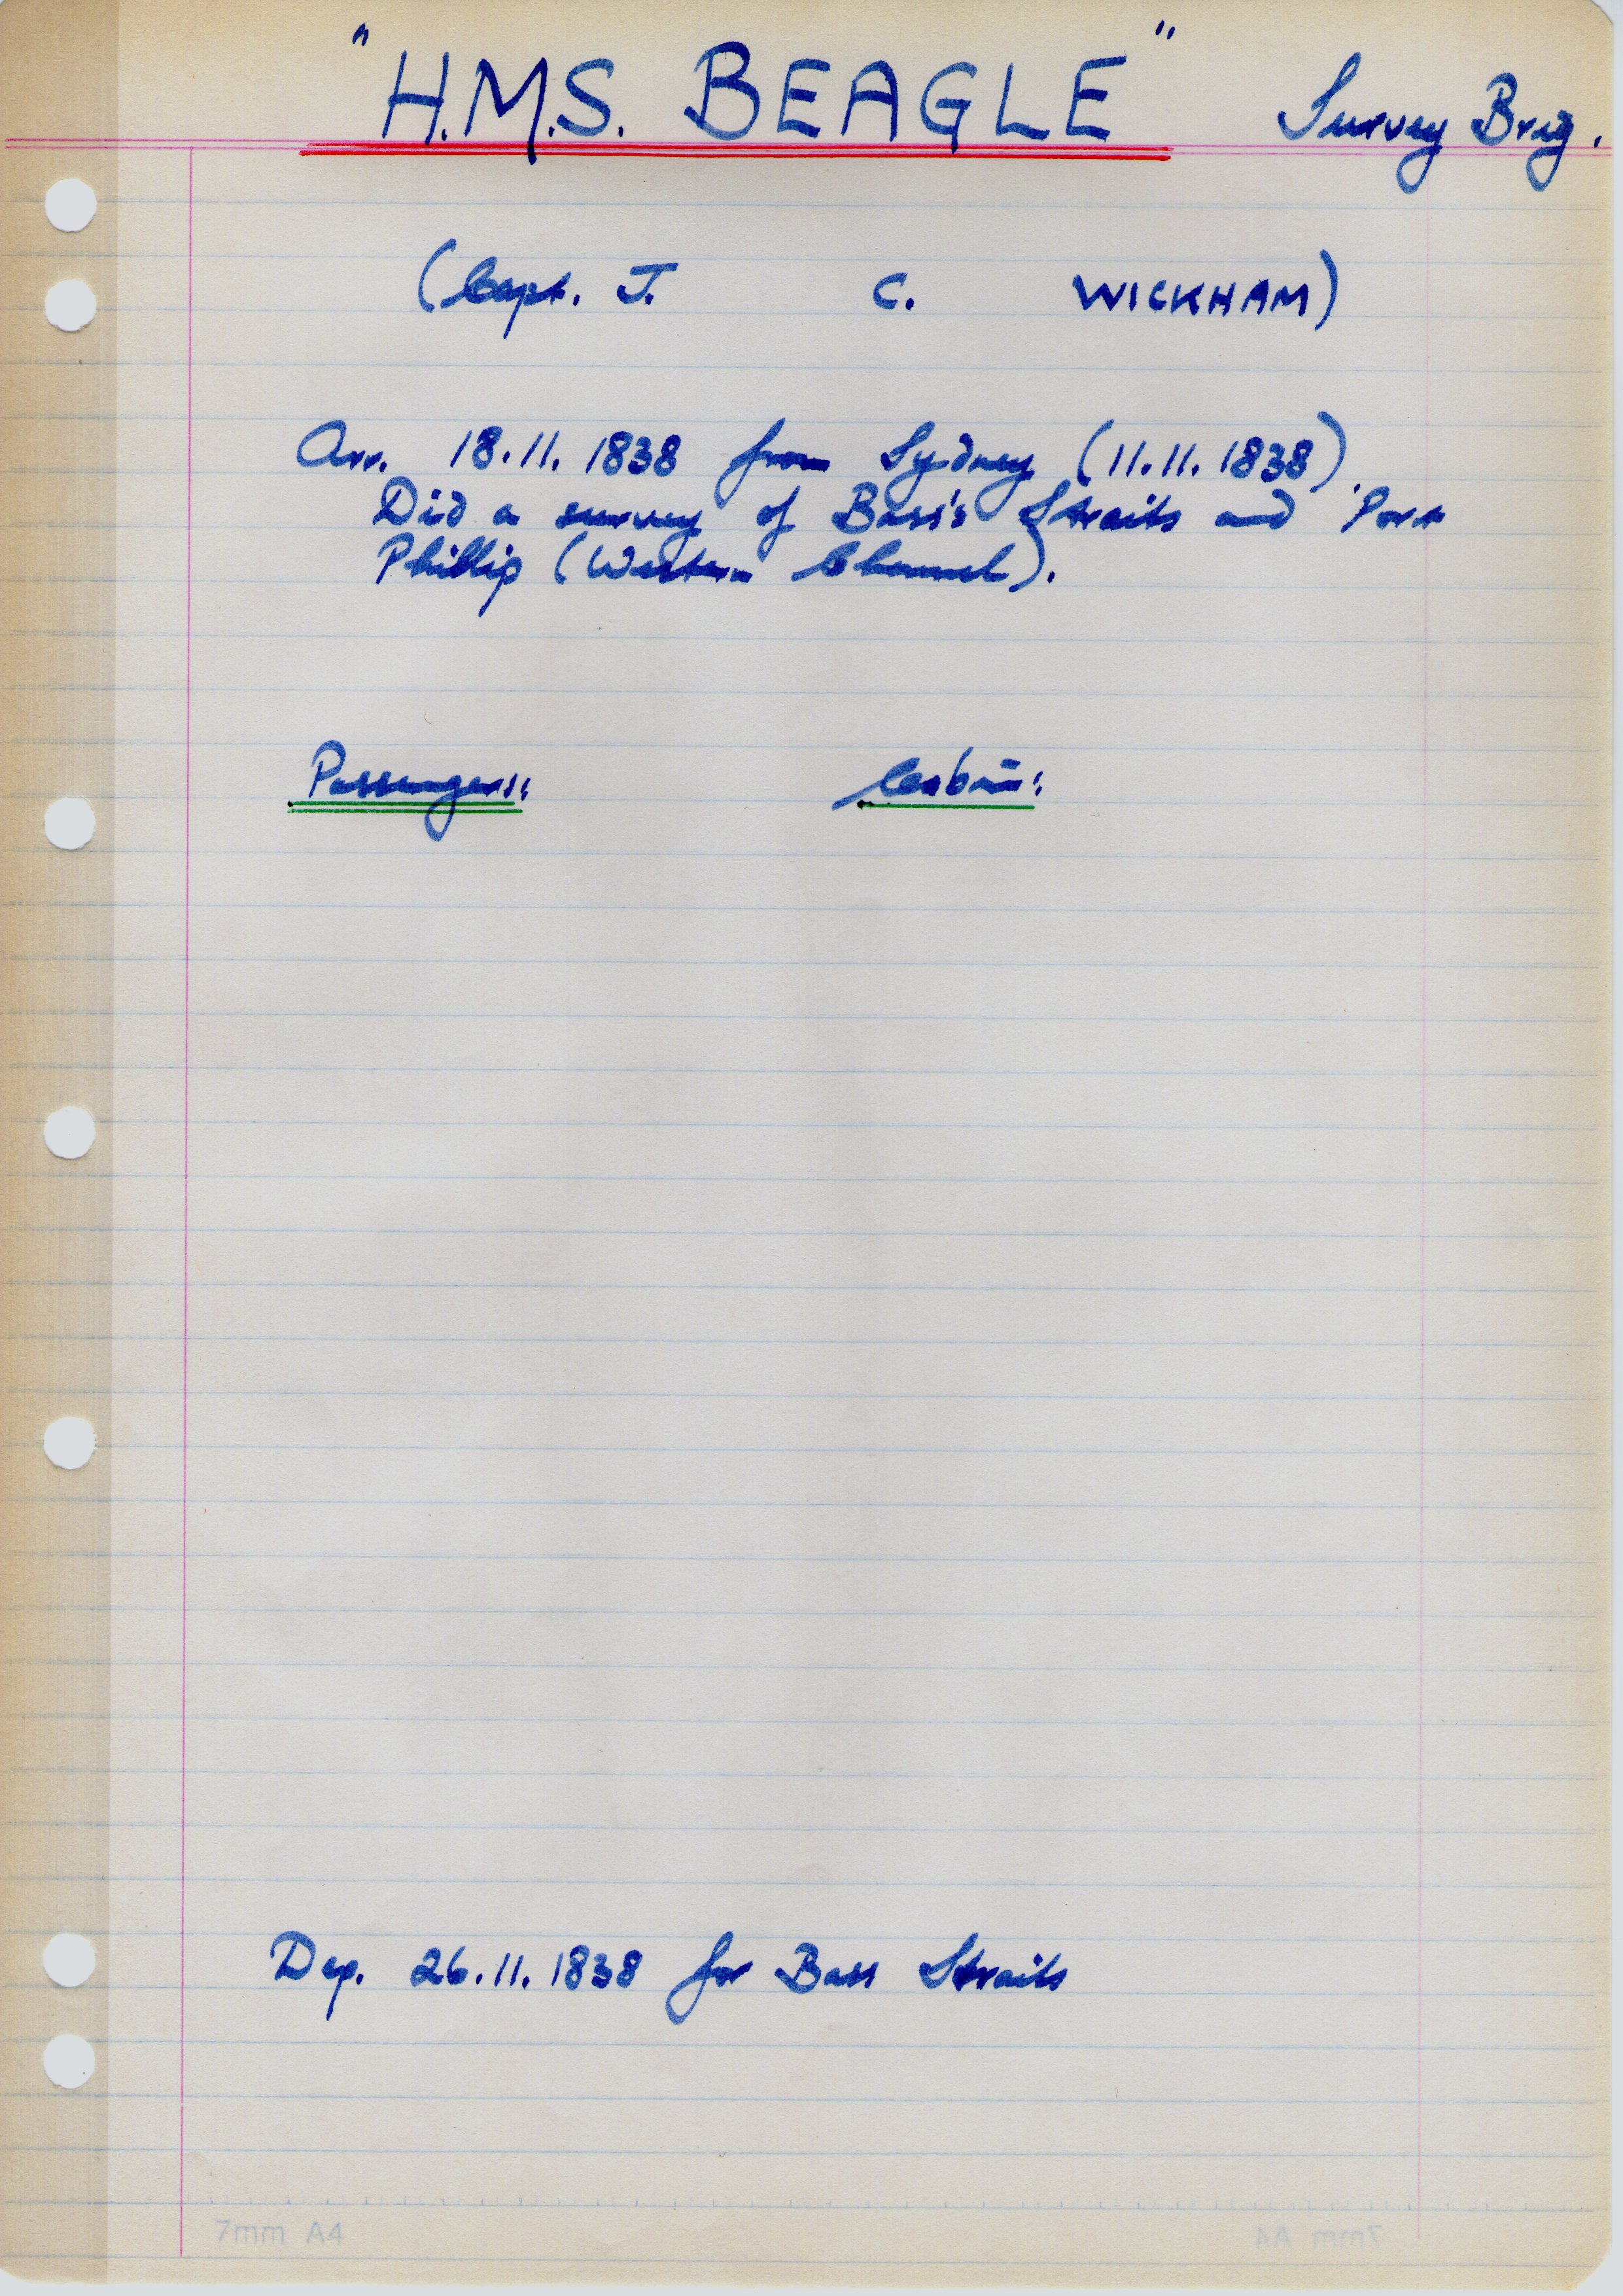 "H.M.S. BEAGLE" Survey Brig.
(Capt. J. C. WICKHAM)
Arr. 18.11.1838 from Sydney (11.11.1838).
Did a survey of Bass's Straits and Port
Phillip (Western Channel).
Passengers: Cabin:
Dep. 26.11.1838 for Bass Straits
7mm A4